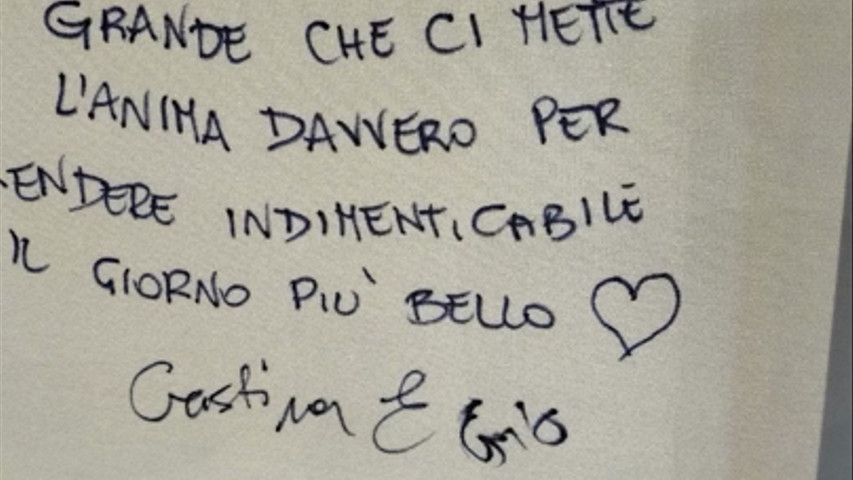 GRANDE CHE CI METTE
L'ANIMA DAVVERO PER
RENDERE INDIMENTICABILE
IL GIORNO PIU' BELLO
E